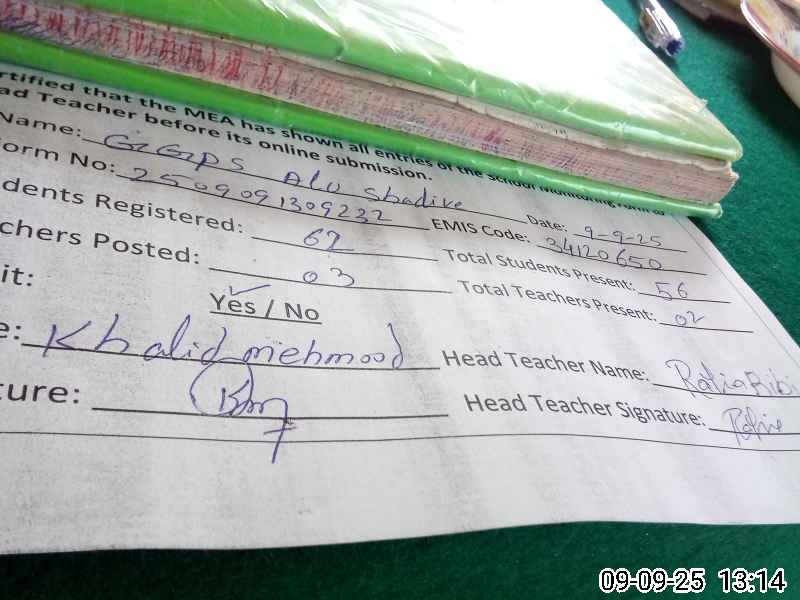 rtified that the MEA has shown all entries of the School Monitoring Form to
ad Teacher before its online submission.
Name: GGPS Alu Shadike Date: 9-9-25
orm No: 2509091309232 EMIS Code: 34120650
dents Registered: 62 Total Students Present: 56
chers Posted: 03 Total Teachers Present: 02
it: Yes / No
e: Khalid mehmood Head Teacher Name: Rafia Bibi
ture: Head Teacher Signature:
09-09-25 13:14